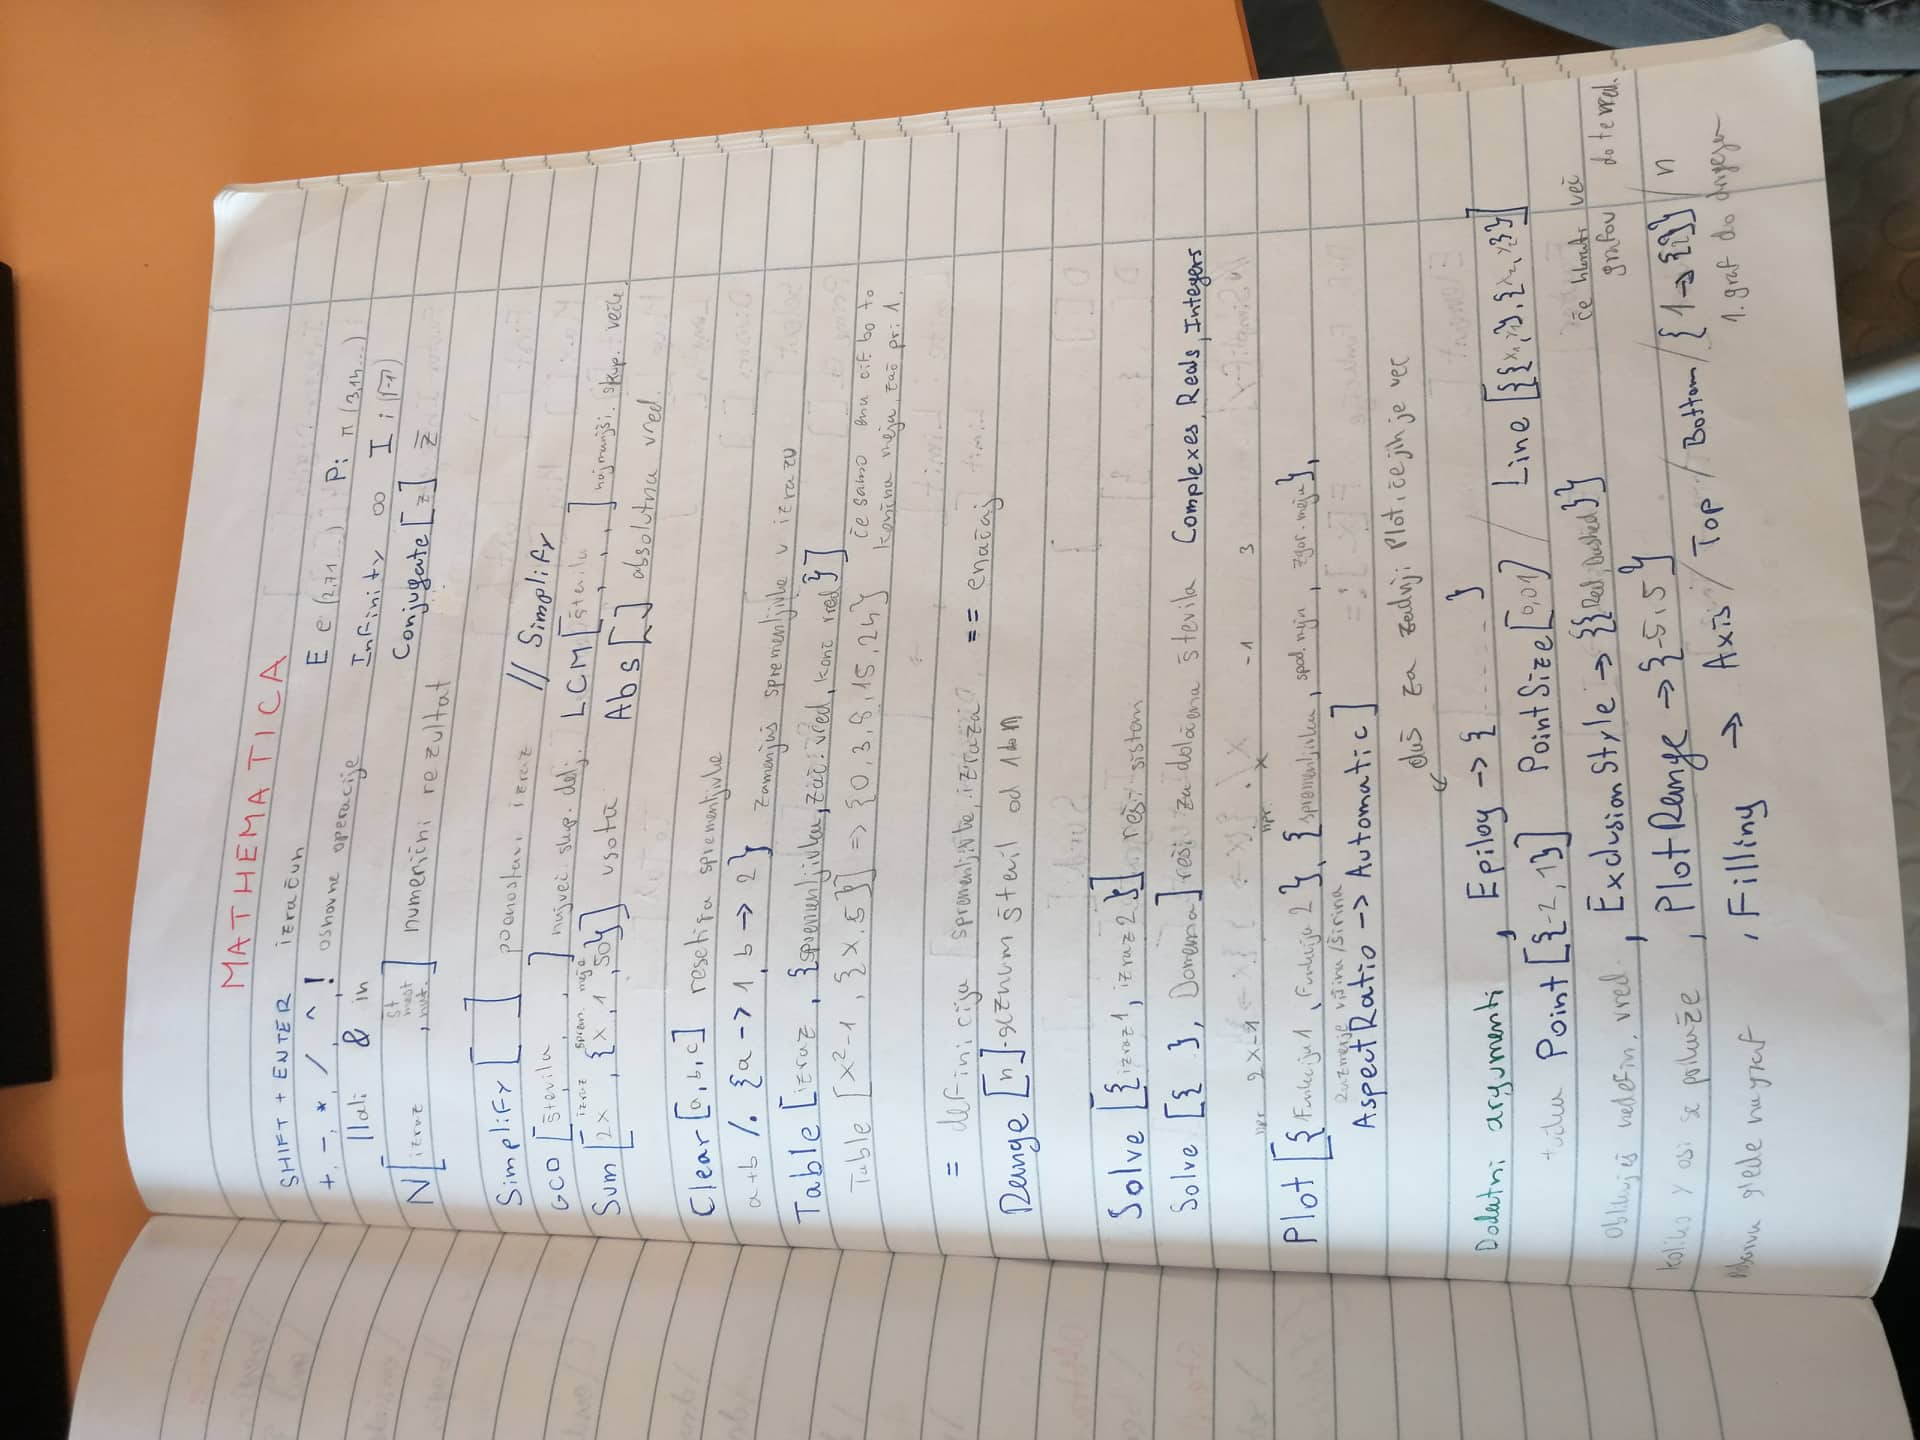 MATHEMATICA
SHIFT + ENTER izračun
+, -, *, /, ^, ! osnovne operacije E e (2,71...) Pi π (3,14...)
|| ali & in Infinity ∞ I i (√-1)
N[izraz, št mest nat.] numerični rezultat Conjugate[z] z̄
Simplify[ ] poenostavi izraz // Simplify
GCD[števila, , ] največ skup. delj. LCM[števila, , , ] najmanjši. skup. več.
Sum[2x, {x, 1, 50}] vsota Abs[ ] absolutna vred.
izraz sprem. meja
Clear[a,b,c] resetira spremenljivke
a+b /. {a -> 1, b -> 2} zamenjaš spremenljivke v izrazu
Table[izraz, {spremenljivka, zač. vred, konč vred}]
Table[x²-1, {x, 5}] => {0, 3, 8, 15, 24} če samo ena cif. bo to končna meja, zač pri 1.
= definicija spremenljivke, izraza == enačaj
Range[n] - seznam števil od 1 do n
Solve[{izraz1, izraz2}] reši sistem
Solve[{ }, Domena] reši za določena števila Complexes, Reals, Integers
npr 2x-1 npr. x -1 3
Plot[{Funkcija1, Funkcija 2}, {spremenljivka, spod. meja, zgor. meja},
razmerje višina/širina
AspectRatio -> Automatic]
daš za zadnji Plot če jih je več
Dodatni argumenti , Epilog -> { ...... }
Point[{-2, 1}] PointSize[0,01] / Line[{{x₁,y₁},{x₂,y₂}}]
oblikuješ nedefin. vred. , ExclusionStyle -> {{Red, Dashed}}
koliko y osi se pokaže , PlotRange -> {-5, 5}
glede na graf , Filling -> Axis / Top / Bottom / {1 -> {2}} / n
če hkrati več grafov do te vred.
1. graf do drugega